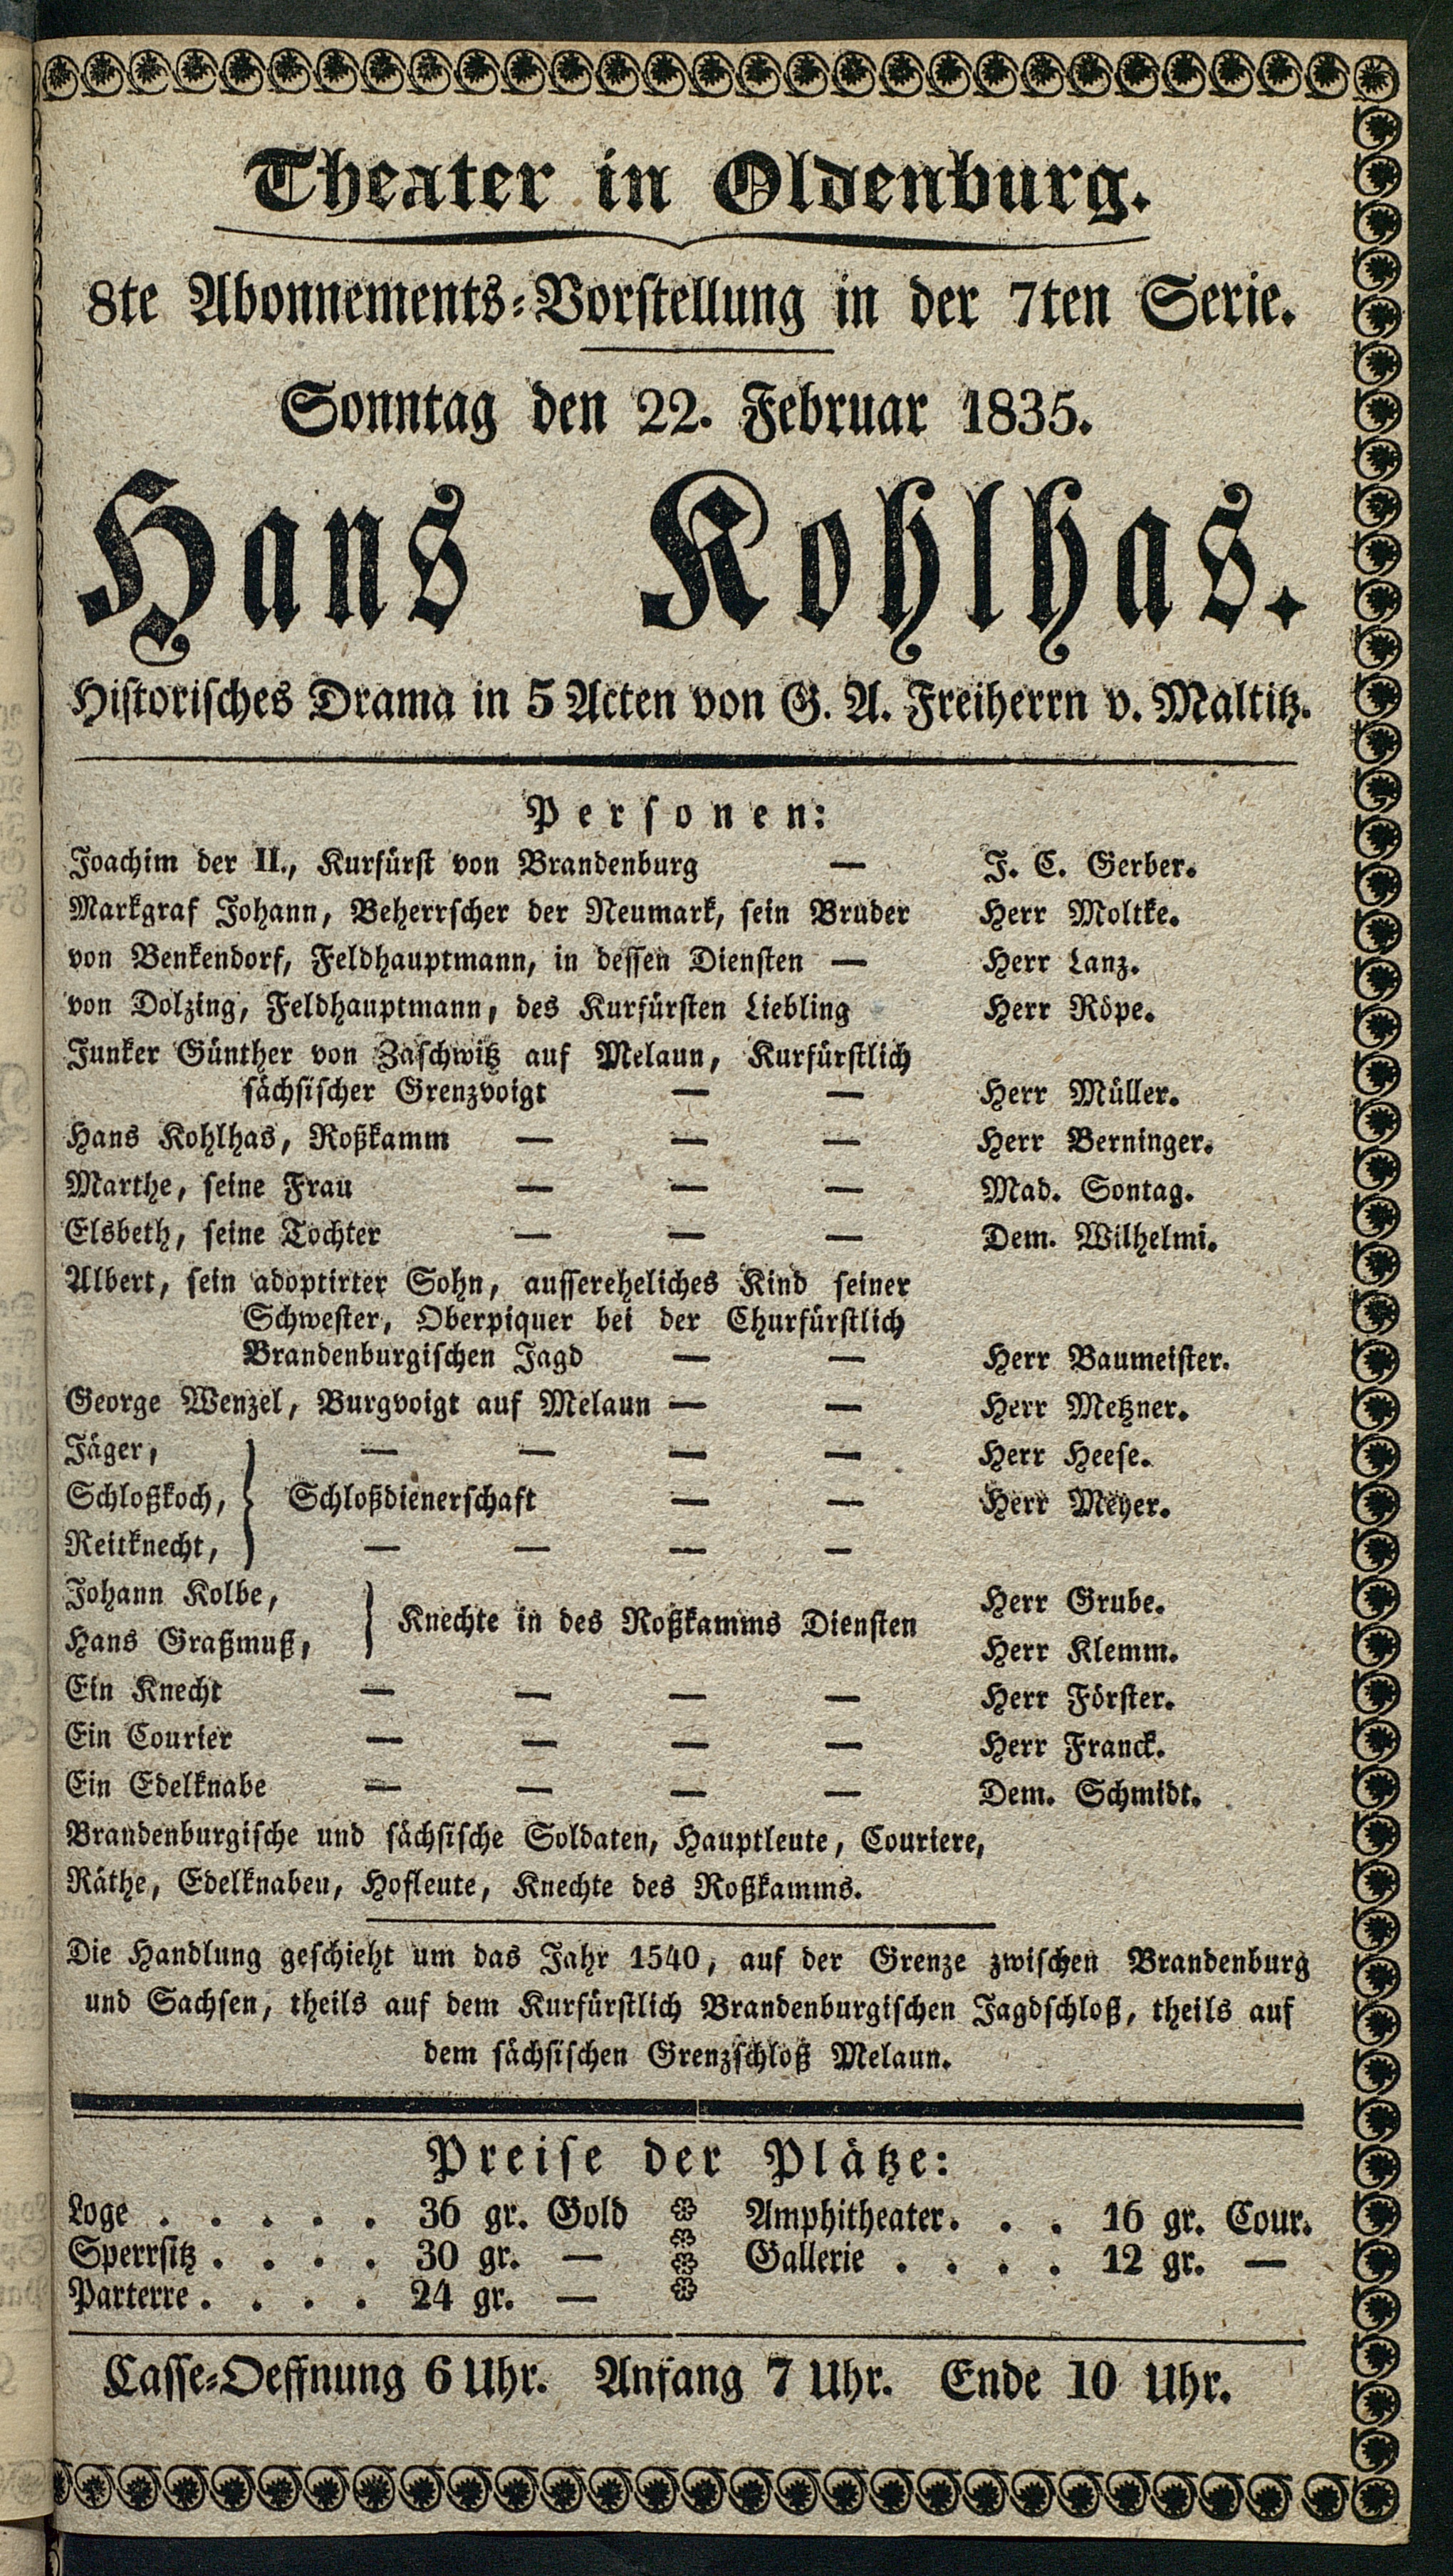 Theater in Oldenburg.
8te Abonnements-Vorstellung in der 7ten Serie.
Sonntag den 22. Februar 1835.
Hans Kohlhas.
Historisches Drama in 5 Acten von G. A. Freiherrn v. Maltitz.
Personen:
Joachim der II., Kurfürst von Brandenburg — J. C. Gerber.
Markgraf Johann, Beherrscher der Neumark, sein Bruder Herr Moltke.
von Benkendorf, Feldhauptmann, in dessen Diensten — Herr Lanz.
von Dolzing, Feldhauptmann, des Kurfürsten Liebling Herr Röpe.
Junker Günther von Zaschwitz auf Melaun, Kurfürstlich
sächsischer Grenzvoigt — — Herr Müller.
Hans Kohlhas, Roßkamm — — — Herr Berninger.
Marthe, seine Frau — — — Mad. Sontag.
Elsbeth, seine Tochter — — — Dem. Wilhelmi.
Albert, sein adoptirter Sohn, aussereheliches Kind seiner
Schwester, Oberpiquer bei der Churfürstlich
Brandenburgischen Jagd — — Herr Baumeister.
George Wenzel, Burgvoigt auf Melaun — — Herr Metzner.
Jäger, — — — — Herr Heese.
Schloßkoch, } Schloßdienerschaft — — Herr Meyer.
Reitknecht, — — — —
Johann Kolbe, Herr Grube.
} Knechte in des Roßkamms Diensten
Hans Graßmuß, Herr Klemm.
Ein Knecht — — — — Herr Förster.
Ein Courier — — — — Herr Franck.
Ein Edelknabe — — — — Dem. Schmidt.
Brandenburgische und sächsische Soldaten, Hauptleute, Couriere,
Räthe, Edelknaben, Hofleute, Knechte des Roßkamms.
Die Handlung geschieht um das Jahr 1540, auf der Grenze zwischen Brandenburg
und Sachsen, theils auf dem Kurfürstlich Brandenburgischen Jagdschloß, theils auf
dem sächsischen Grenzschloß Melaun.
Preise der Plätze:
Loge . . . . . 36 gr. Gold Amphitheater. . . 16 gr. Cour.
Sperrsitz . . . . 30 gr. — Gallerie . . . . 12 gr. —
Parterre . . . . 24 gr. —
Casse-Oeffnung 6 Uhr. Anfang 7 Uhr. Ende 10 Uhr.